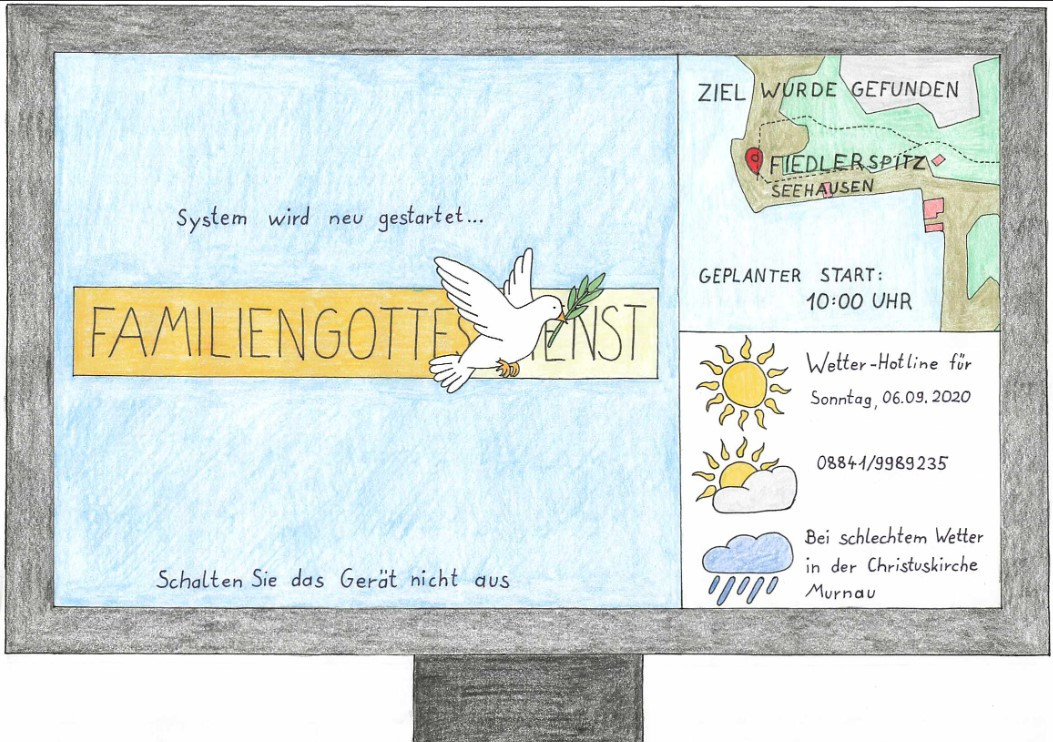 System wird neu gestartet...
FAMILIENGOTTESDIENST
Schalten Sie das Gerät nicht aus
ZIEL WURDE GEFUNDEN
FIEDLERSPITZ
SEEHAUSEN
GEPLANTER START:
10:00 UHR
Wetter-Hotline für
Sonntag, 06.09.2020
08841/9989235
Bei schlechtem Wetter
in der Christuskirche
Murnau